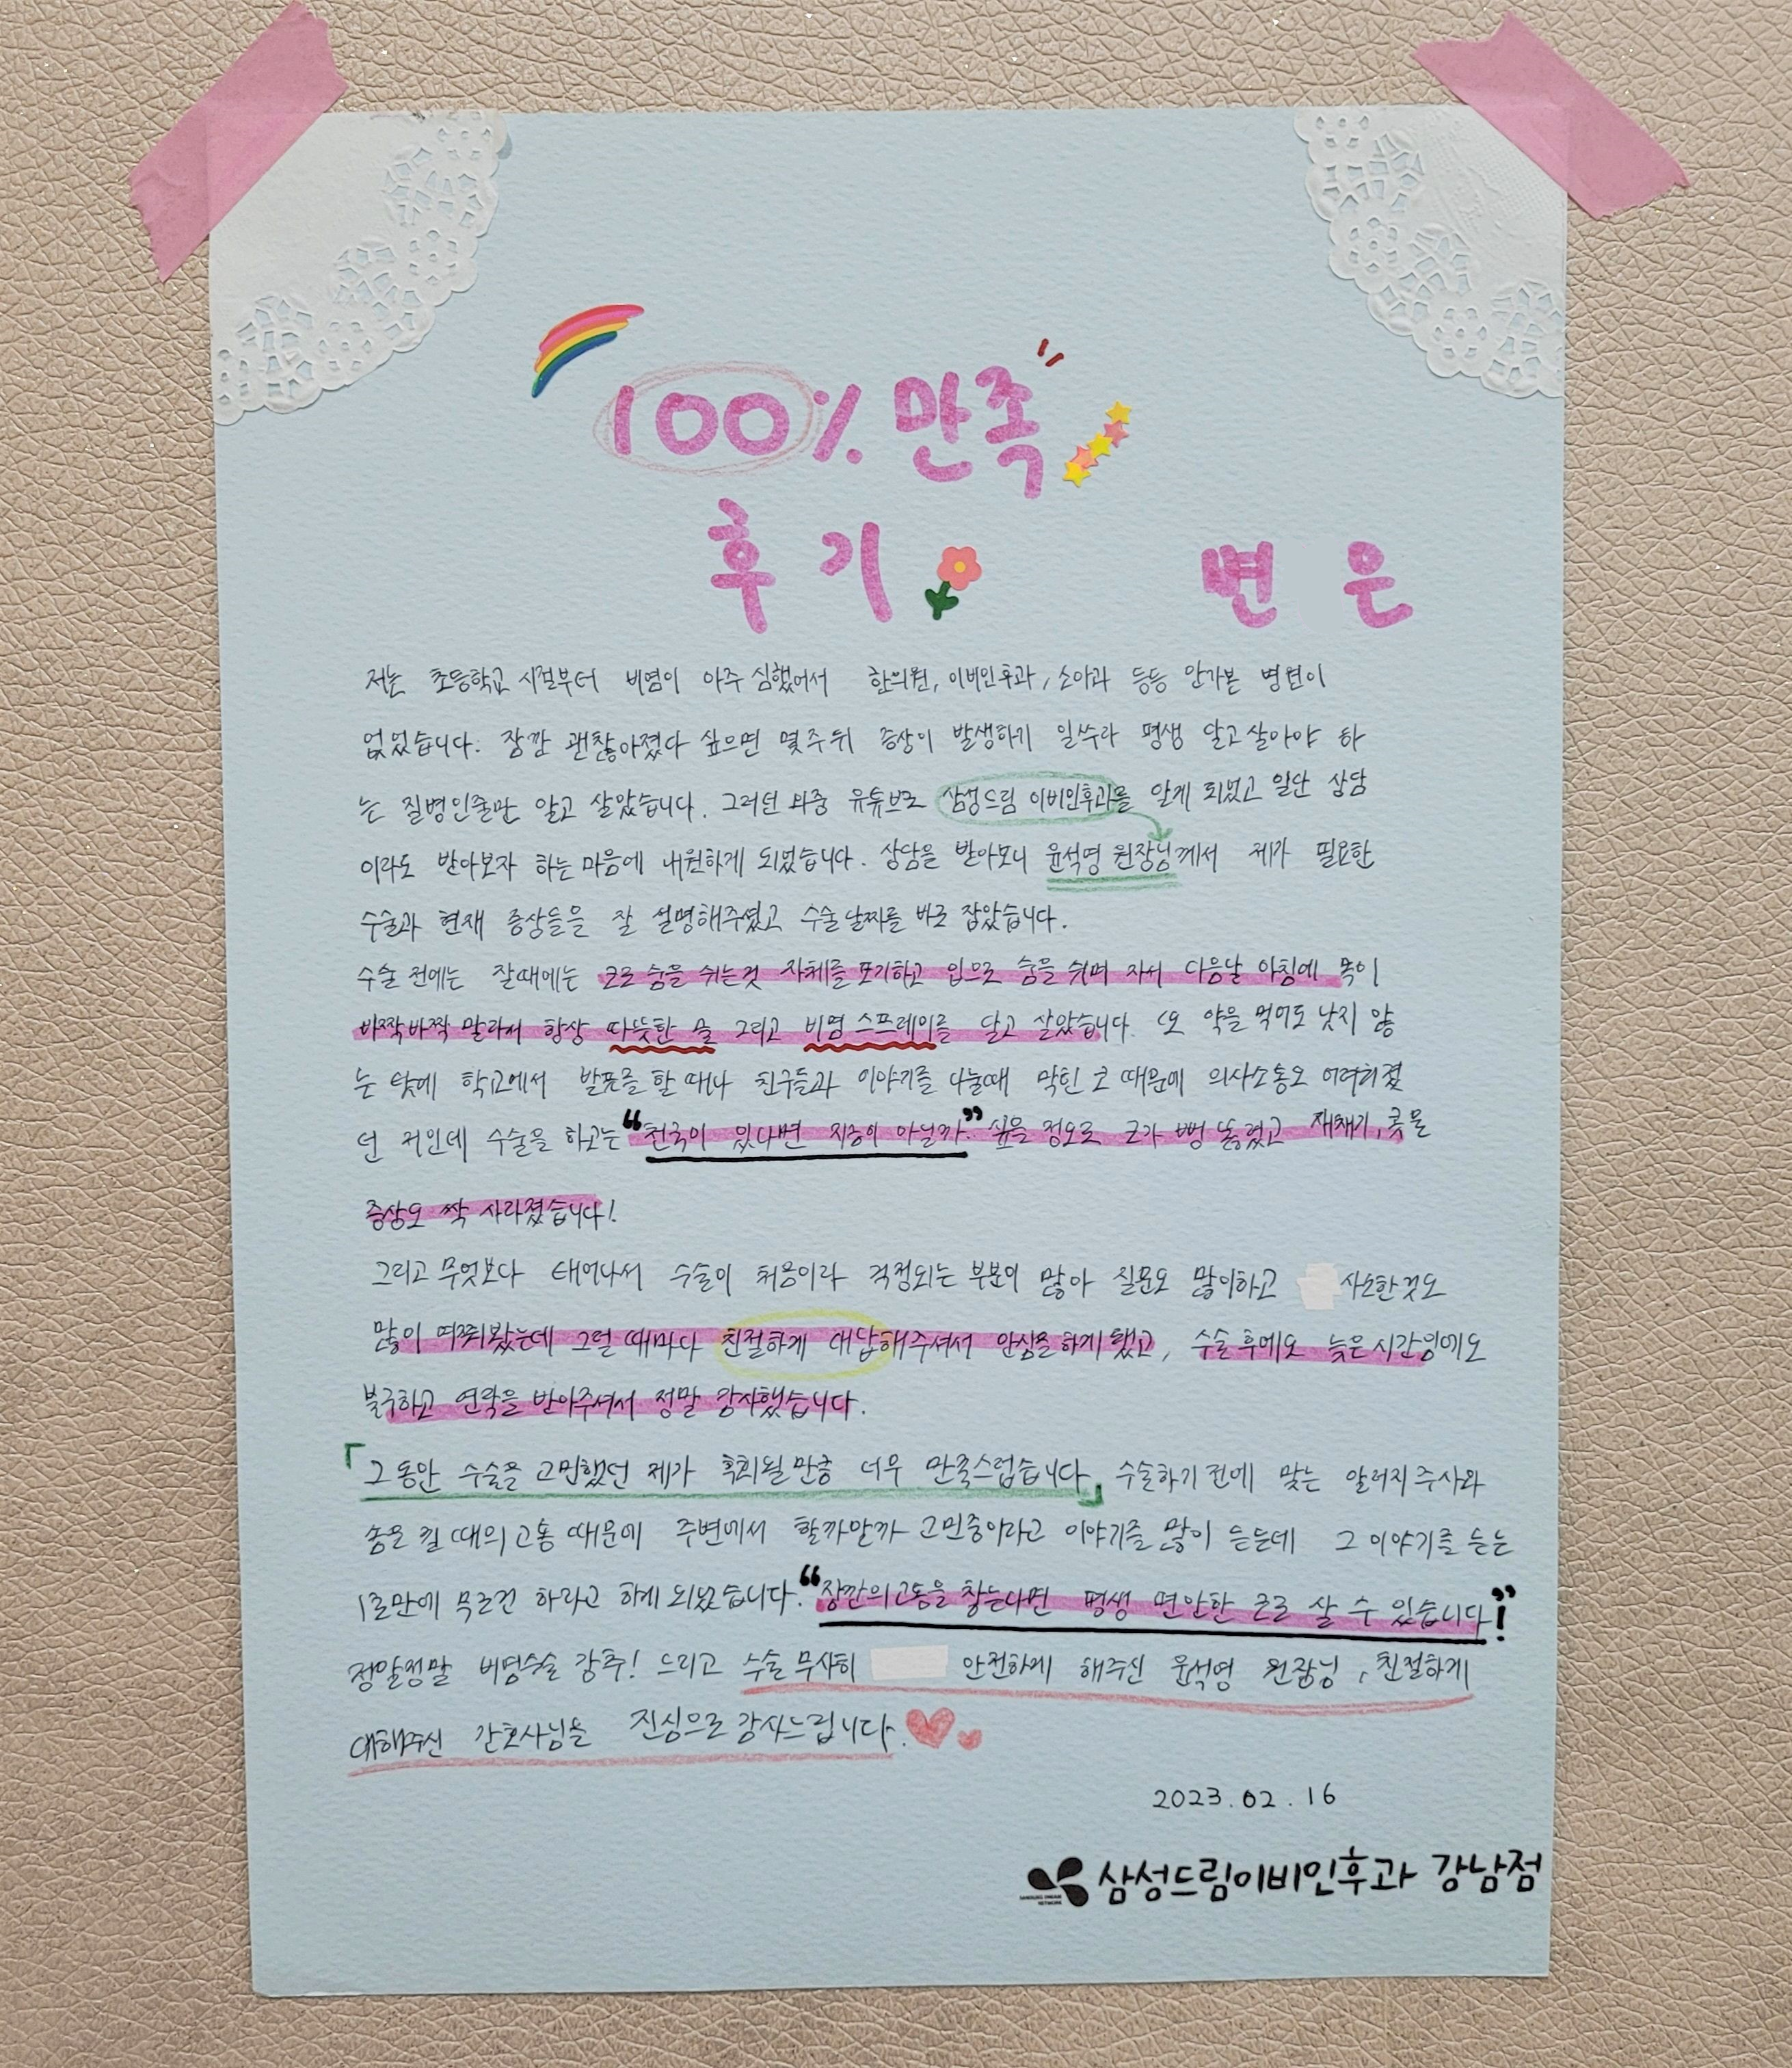 100% 만족
후기
변 은
저는 초등학교 시절부터 비염이 아주 심했어서 한의원, 이비인후과, 소아과 등등 안가본 병원이
없었습니다. 잠깐 괜찮아졌다 싶으면 몇주뒤 증상이 발생하기 일쑤라 평생 달고살아야 하
는 질병인줄만 알고 살았습니다. 그러던 와중 유튜브로 삼성드림 이비인후과를 알게 되었고 일단 상담
이라도 받아보자 하는 마음에 내원하게 되었습니다. 상담을 받아보니 윤석영 원장님께서 제가 필요한
수술과 현재 증상들을 잘 설명해주셨고 수술날짜를 바로 잡았습니다.
수술 전에는 잘때에는 코로 숨을 쉬는것 자체를 포기하고 입으로 숨을 쉬며 자서 다음날 아침에 목이
바짝바짝 말라서 항상 따뜻한 물 그리고 비염 스프레이를 달고 살았습니다. 또 약을 먹어도 낫지 않
는 탓에 학교에서 발표를 할 때나 친구들과 이야기를 나눌때 막힌 코 때문에 의사소통도 어려워졌
던 저인데 수술을 하고는 “천국이 있다면 지금이 아닐까” 싶을 정도로 코가 뻥 뚫렸고 재채기, 콧물
증상도 싹 사라졌습니다!
그리고 무엇보다 태어나서 수술이 처음이라 걱정되는 부분이 많아 질문도 많이하고 사소한것도
많이 여쭤봤는데 그럴 때마다 친절하게 대답해주셔서 안심을하게됐고, 수술후에도 늦은시간임에도
불구하고 연락을 받아주셔서 정말 감사했습니다.
「그동안 수술을 고민했던 제가 후회될만큼 너무 만족스럽습니다」 수술하기 전에 맞는 알러지주사와
솜을 뺄 때의 고통 때문에 주변에서 할까말까 고민중이라고 이야기를 많이 듣는데 그 이야기를 듣는
1초만에 무조건 하라고 하게되었습니다. “잠깐의고통을 참는다면 평생 편안한 코로 살 수 있습니다!”
정말정말 비염수술 강추! 드리고 수술 무사히 안전하게 해주신 윤석영 원장님, 친절하게
대해주신 간호사님들 진심으로 감사드립니다.
2023.02.16
SAMSUNG DREAM
NETWORK
삼성드림이비인후과 강남점